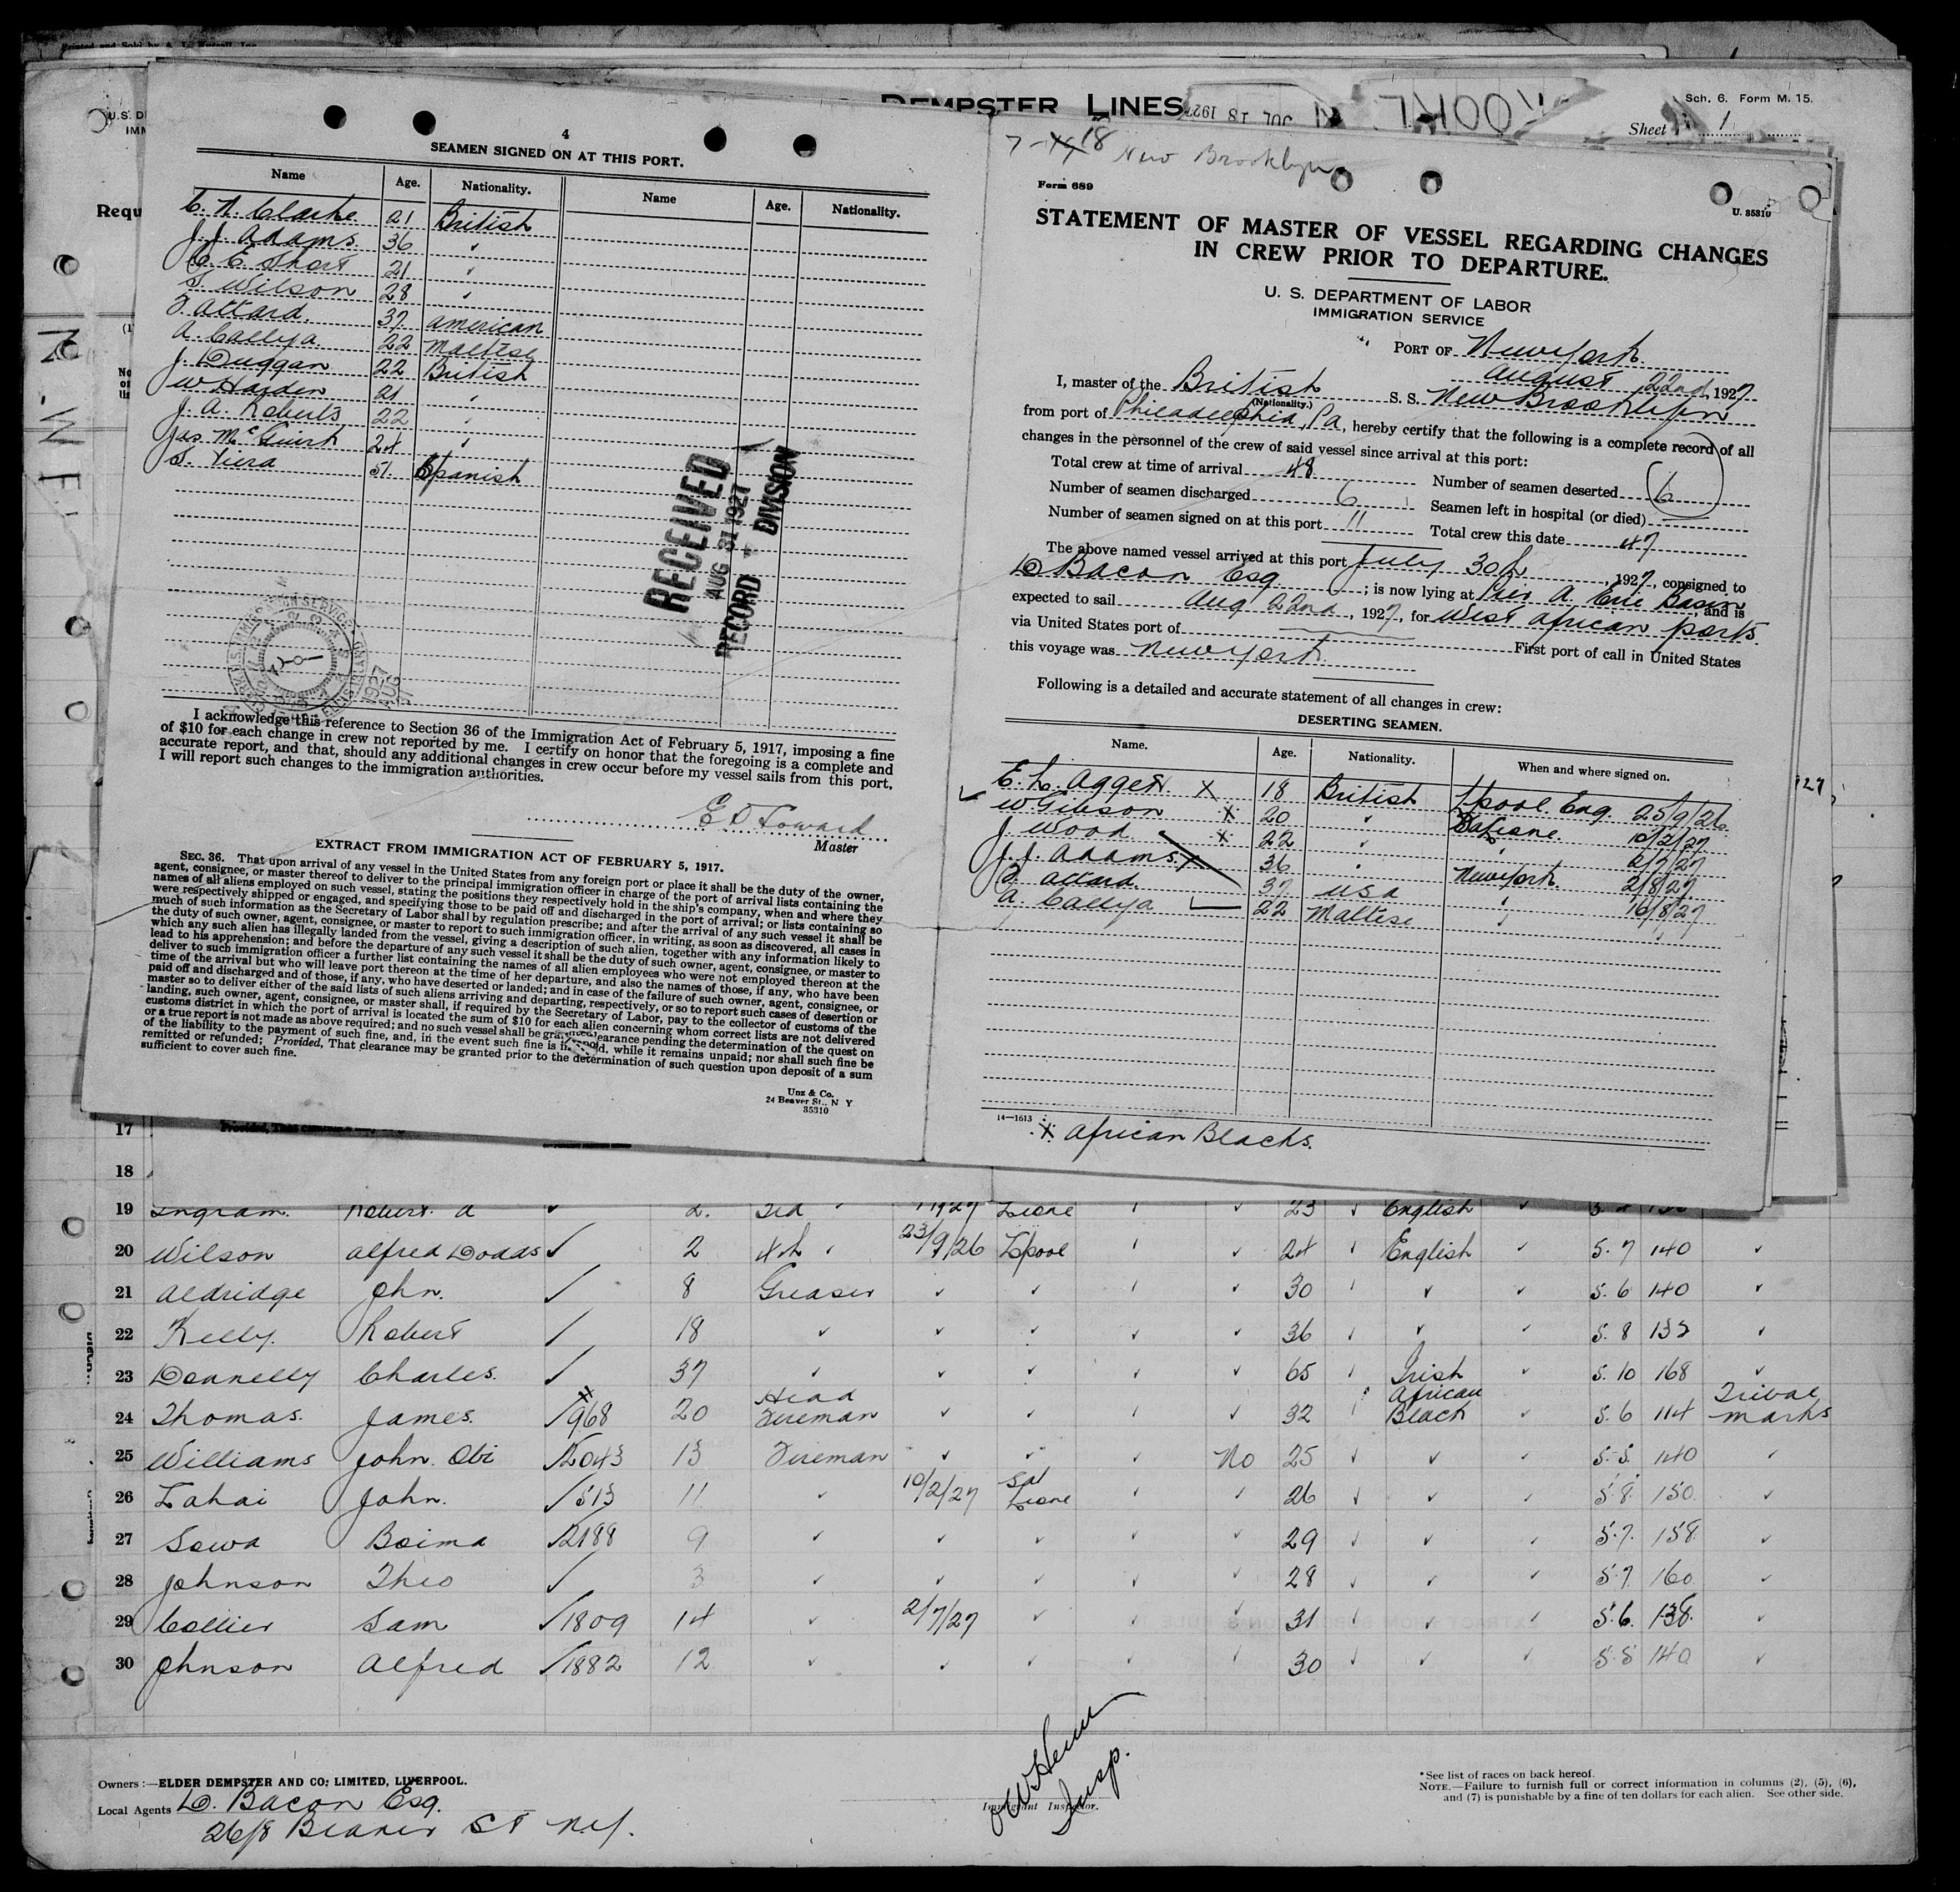 DEMPSTER LINES
JUL 18 1927
Sch. 6. Form M. 15.
Sheet 1
4
SEAMEN SIGNED ON AT THIS PORT.
Name Age. Nationality. Name Age. Nationality.
C. N. Clarke 21 British
J. J. Adams 36 "
C. E. Short 21 "
S. Wilson 28 "
Attard. 37 American
A. Calleya 22 Maltese
J. Duggan 22 British
W Harden 21 "
J. A. Roberts 22 "
Jas. McGuirk 24 "
S. Viera 51. Spanish
RECEIVED
AUG 31 1927
RECORD DIVISION
I acknowledge this reference to Section 36 of the Immigration Act of February 5, 1917, imposing a fine
of $10 for each change in crew not reported by me. I certify on honor that the foregoing is a complete and
accurate report, and that, should any additional changes in crew occur before my vessel sails from this port,
I will report such changes to the immigration authorities.
Master
EXTRACT FROM IMMIGRATION ACT OF FEBRUARY 5, 1917.
SEC. 36. That upon arrival of any vessel in the United States from any foreign port or place it shall be the duty of the owner,
agent, consignee, or master thereof to deliver to the principal immigration officer in charge of the port of arrival lists containing the
names of all aliens employed on such vessel, stating the positions they respectively hold in the ship's company, when and where they
were respectively shipped or engaged, and specifying those to be paid off and discharged in the port of arrival; or lists containing so
much of such information as the Secretary of Labor shall by regulation prescribe; and after the arrival of any such vessel it shall be
the duty of such owner, agent, consignee, or master to report to such immigration officer, in writing, as soon as discovered, all cases in
which any such alien has illegally landed from the vessel, giving a description of such alien, together with any information likely to
lead to his apprehension; and before the departure of any such vessel it shall be the duty of such owner, agent, consignee, or master to
deliver to such immigration officer a further list containing the names of all alien employees who were not employed thereon at the
time of the arrival but who will leave port thereon at the time of her departure, and also the names of those, if any, who have been
paid off and discharged and of those, if any, who have deserted or landed; and in case of the failure of such owner, agent, consignee, or
master so to deliver either of the said lists of such aliens arriving and departing, respectively, or so to report such cases of desertion or
landing, such owner, agent, consignee, or master shall, if required by the Secretary of Labor, pay to the collector of customs of the
customs district in which the port of arrival is located the sum of $10 for each alien concerning whom correct lists are not delivered
or a true report is not made as above required; and no such vessel shall be granted clearance pending the determination of the quest on
of the liability to the payment of such fine, and, in the event such fine is imposed, while it remains unpaid; nor shall such fine be
remitted or refunded; Provided, That clearance may be granted prior to the determination of such question upon deposit of a sum
sufficient to cover such fine.
Unz & Co.
24 Beaver St., N Y
35310
7-18 New Brooklyn
Form 689
U. 35310
STATEMENT OF MASTER OF VESSEL REGARDING CHANGES
IN CREW PRIOR TO DEPARTURE.
U. S. DEPARTMENT OF LABOR
IMMIGRATION SERVICE
PORT OF New York
August 22nd, 1927
I, master of the British S. S. New Brooklyn
(Nationality.)
from port of Philadelphia, Pa, hereby certify that the following is a complete record of all
changes in the personnel of the crew of said vessel since arrival at this port:
Total crew at time of arrival 48 Number of seamen deserted 6
Number of seamen discharged 6 Seamen left in hospital (or died)
Number of seamen signed on at this port 11 Total crew this date 47
The above named vessel arrived at this port July 30th, 1927, consigned to
D Bacon Esq; is now lying at Pier A. Erie Basin, and is
expected to sail Aug 22nd, 1927, for West African ports
via United States port of First port of call in United States
this voyage was New York
Following is a detailed and accurate statement of all changes in crew:
DESERTING SEAMEN.
Name. Age. Nationality. When and where signed on.
E. L. Aggett X 18 British Lpool. Eng. 25/9/26
W Gibson X 20 " 10/2/27
J. Wood X 22 " " 2/7/27
J. J. Adams. X 36 " New York. 2/8/27
Attard. 37 USA " 16/8/27
A. Calleya 22 Maltese " "
14—1613
X African Blacks.
17
18
19 Ingram. Robert. A 2. 3rd 23 English
20 Wilson Alfred Dodds 2 4th 23/9/26 Lpool 24 English 5.7 140
21 Aldridge John. 8 Greaser 30 5.6 140
22 Kelly. Robert 18 36 5.8 132
23 Donnelly Charles. 37 65 Irish 5.10 168
24 Thomas. James. 968 20 Head Fireman 32 African Black 5.6 114 Tribal marks
25 Williams John. Obi 2043 13 Fireman No 25 5.5. 140
26 Lahai John. 513 11 10/2/27 26 5.8. 150.
27 Sowa Boima 2188 9 29 5.7. 158.
28 Johnson Theo 3 28 5.7. 160.
29 Collier Sam 1809 14 2/7/27 31 5.6. 138.
30 Johnson Alfred 1882 12 30 5.5 140.
Owners:—ELDER DEMPSTER AND CO; LIMITED, LIVERPOOL.
Local Agents D. Bacon Esq.
26/8 Beaver St N.Y.
Immigrant Inspector.
Insp.
*See list of races on back hereof.
NOTE.—Failure to furnish full or correct information in columns (2), (5), (6),
and (7) is punishable by a fine of ten dollars for each alien. See other side.